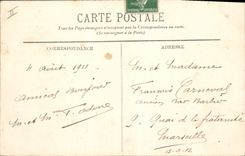 CARTE POSTALE
Tous les Pays étrangers n'acceptent pas la Correspondance au recto
(Se renseigner à la Poste).
CORRESPONDANCE
ADRESSE
4 août 1911
Amical Bonjour
M. et M.
M. et Madame
François Carneval
ancien
9, Quai de la fraternité
Marseille